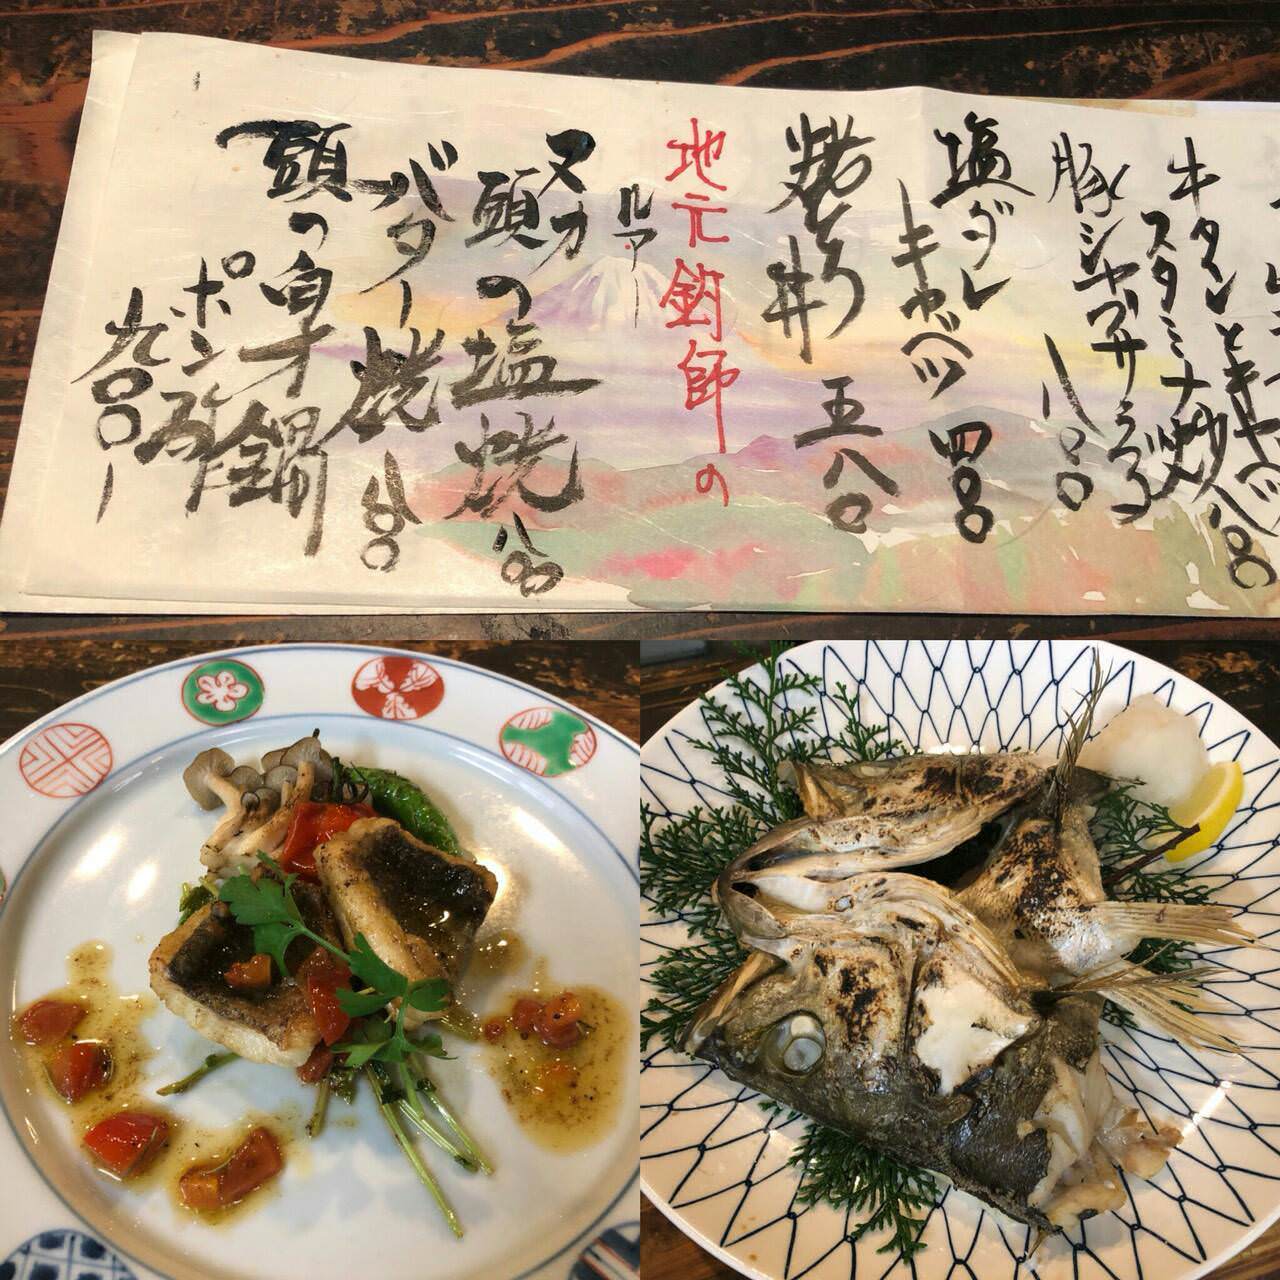 牛タンとキャベツ
スタミナ炒 八〇〇
豚シャブサラダ
八〇〇
塩ダレ
キャベツ 四〇〇
丼 五八〇
地元釣師の
ルアー
ヌカ
頭の塩焼 八〇〇
バター焼 八〇〇
頭の白才鍋
ポン酢
九〇〇